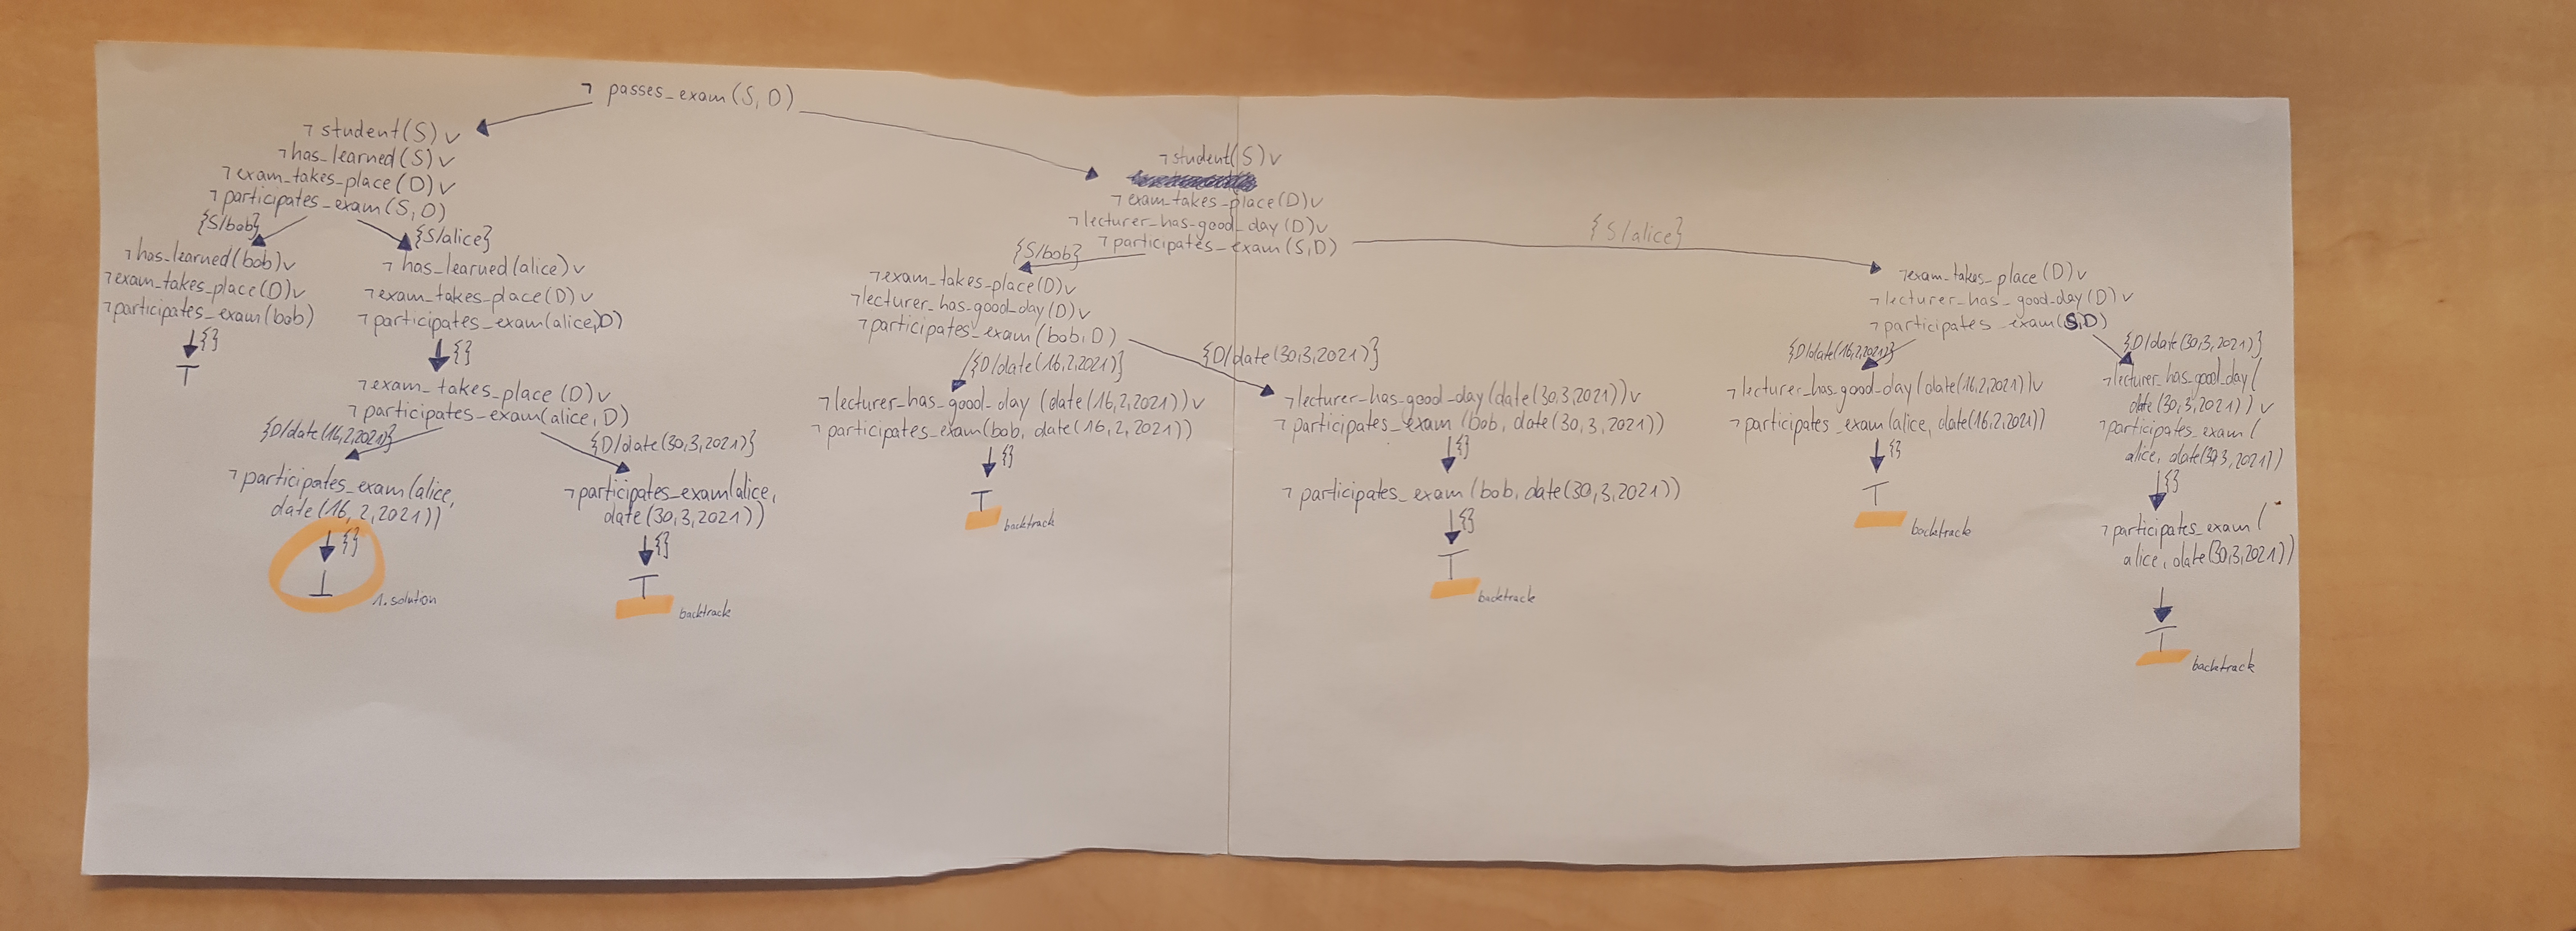 ¬ passes_exam(S, D)
¬student(S) ∨
¬has_learned(S) ∨
¬exam_takes_place(D) ∨
¬participates_exam(S, D)
{S/bob}
{S/alice}
¬has_learned(bob) ∨
¬exam_takes_place(D) ∨
¬participates_exam(bob)
{}
⊤
¬has_learned(alice) ∨
¬exam_takes_place(D) ∨
¬participates_exam(alice,D)
{}
¬exam_takes_place (D) ∨
¬participates_exam(alice, D)
{D/date(16,2,2021)}
{D/date(30,3,2021)}
¬participates_exam(alice,
date(16,2,2021))
{}
⊥
1. solution
¬participates_exam(alice,
date(30,3,2021))
{}
⊤
backtrack
¬student(S) ∨
¬exam_takes_place(D) ∨
¬lecturer_has_good_day (D) ∨
¬participates_exam(S,D)
{S/bob}
{S/alice}
¬exam_takes_place(D) ∨
¬lecturer_has_good_day(D) ∨
¬participates_exam(bob, D)
{D/date(16,2,2021)}
{D/date(30,3,2021)}
¬lecturer_has_good_day (date(16,2,2021)) ∨
¬participates_exam(bob, date(16,2,2021))
{}
⊤
backtrack
¬lecturer_has_good_day(date(30,3,2021)) ∨
¬participates_exam (bob, date(30,3,2021))
{}
¬participates_exam (bob, date(30,3,2021))
{}
⊤
backtrack
¬exam_takes_place (D) ∨
¬lecturer_has_good_day(D) ∨
¬participates_exam(S,D)
{D/date(16,2,2021)}
{D/date(30,3,2021)}
¬lecturer_has_good_day(date(16,2,2021)) ∨
¬participates_exam(alice, date(16,2,2021))
{}
⊤
backtrack
¬lecturer_has_good_day(
date(30,3,2021)) ∨
¬participates_exam(
alice, date(30,3,2021))
{}
¬participates_exam(
alice, date(30,3,2021))
⊤
backtrack